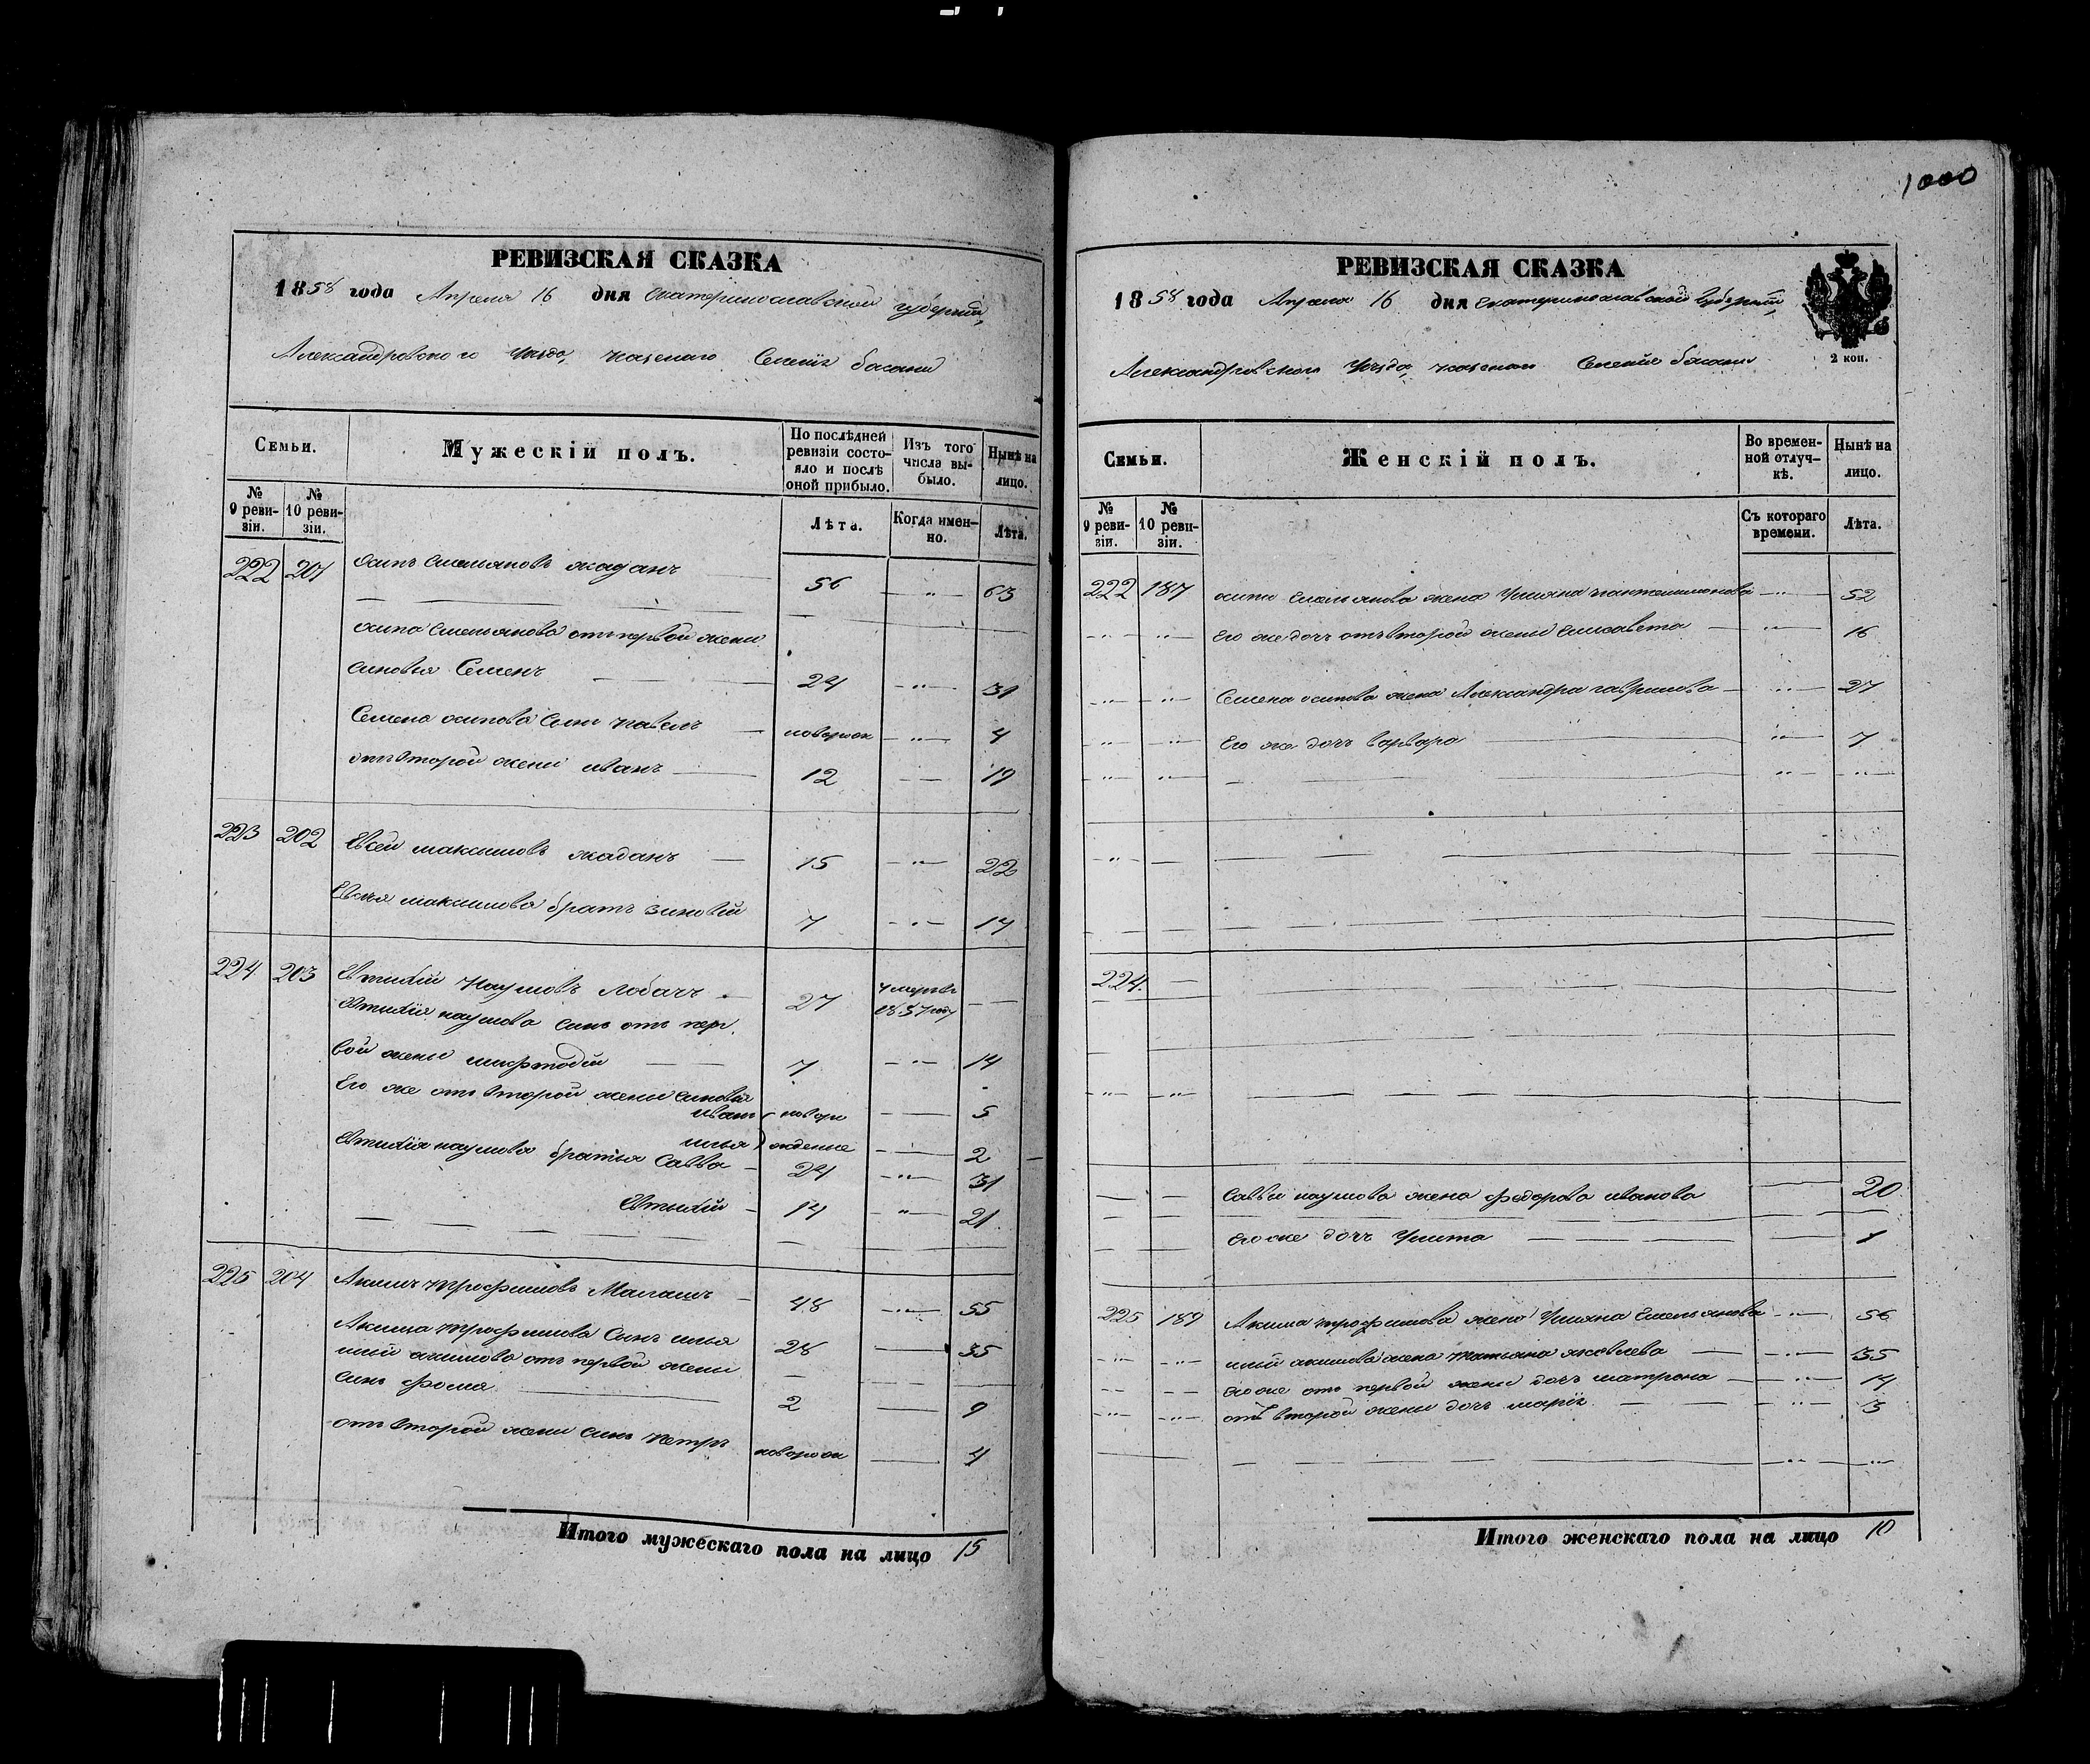 1000
РЕВИЗСКАЯ СКАЗКА
1858 года Апреля 16 дня Екатеринославской губернии,
Александровского Уезда, казенаго Селенія басани
Семьи.
Мужескій полъ.
По послѣдней ревизіи состояло и послѣ оной прибыло.
Изъ того числа выбыло.
Нынѣ на лицо.
№ 9 ревизіи.
№ 10 ревизіи.
Лѣта.
Когда именно.
Лѣта.
222 201 осипъ емельяновъ жаданъ 56 63
осипа емельянова отъ первой жени
синовья Семенъ 24 31
Семена осипова синъ павелъ новорож 4
отъ второй жени иванъ 12 19
223 202 Евсей максимовъ жаданъ 15 22
Евсея максимова братъ зиновій 7 14
224 203 Евтихій наумовъ лобачъ 27 умеръ въ 1857 году
Евтихія наумова синъ отъ пер
вой жени 7 14
Его же отъ второй жени синовья
иванъ новоро 5
илья ждение 2
Евтихія наумова братья Савва 24 31
Евтихій 14 21
225 204 Акимъ трофимовъ 48 55
Акима трофимова Синъ илья 28 35
ильи акимова отъ первой жени
синъ фома 2 9
отъ второй жени синъ петръ новорож 4
Итого мужескаго пола на лицо 15
РЕВИЗСКАЯ СКАЗКА
1858 года Апреля 16 дня Екатеринославской Губерніи,
Александровского Уезда, казенаго Селенія басани
2 коп.
Семьи.
Женскій полъ.
Во временной отлучкѣ.
Нынѣ на лицо.
№ 9 ревизіи.
№ 10 ревизіи.
Съ котораго времени.
Лѣта.
222 187 осипа емельянова жена Ульяна пантелимонова 52
Его же дочь отъ второй жени елисавета 16
Семена осипова жена Александра гаврилова 27
Его же дочь варвара 7
224.
Саввы наумова жена федорова иванова 20
Его же дочь Улита 1
225 189 Акима трофимова жена Ульяна Емельянова 56
ильи акимова жена татьяна яковлева 35
Его же отъ первой жени дочь матрона 14
отъ второй жени дочь марія 3
Итого женскаго пола на лицо 10